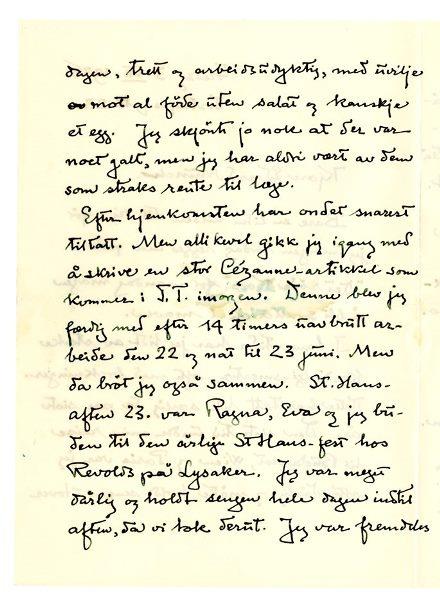 dagen, trett og arbeidsudyktig, med uvilje
mot al føde uten salat og kanskje
et egg. Jeg skjønte jo nok at der var
noet galt, men jeg har aldri vært av dem
som straks rente til læge.
Efter hjemkomsten har ondet snarest
tiltatt. Men allikevel gikk jeg igang med
å skrive en stor Cézanne-artikkel som
kommer i T.T. imorgen. Denne blev jeg
færdig med efter 14 timers uavbrutt ar-
beide den 22 og nat til 23 juni. Men
da brøt jeg også sammen. St. Hans-
aften 23. var Ragna, Eva og jeg bu-
den til den årlige St Hans-fest hos
Revolds på Lysaker. Jeg var meget
dårlig og holdt sengen hele dagen indtil
aften, da vi tok derut. Jeg var fremdeles